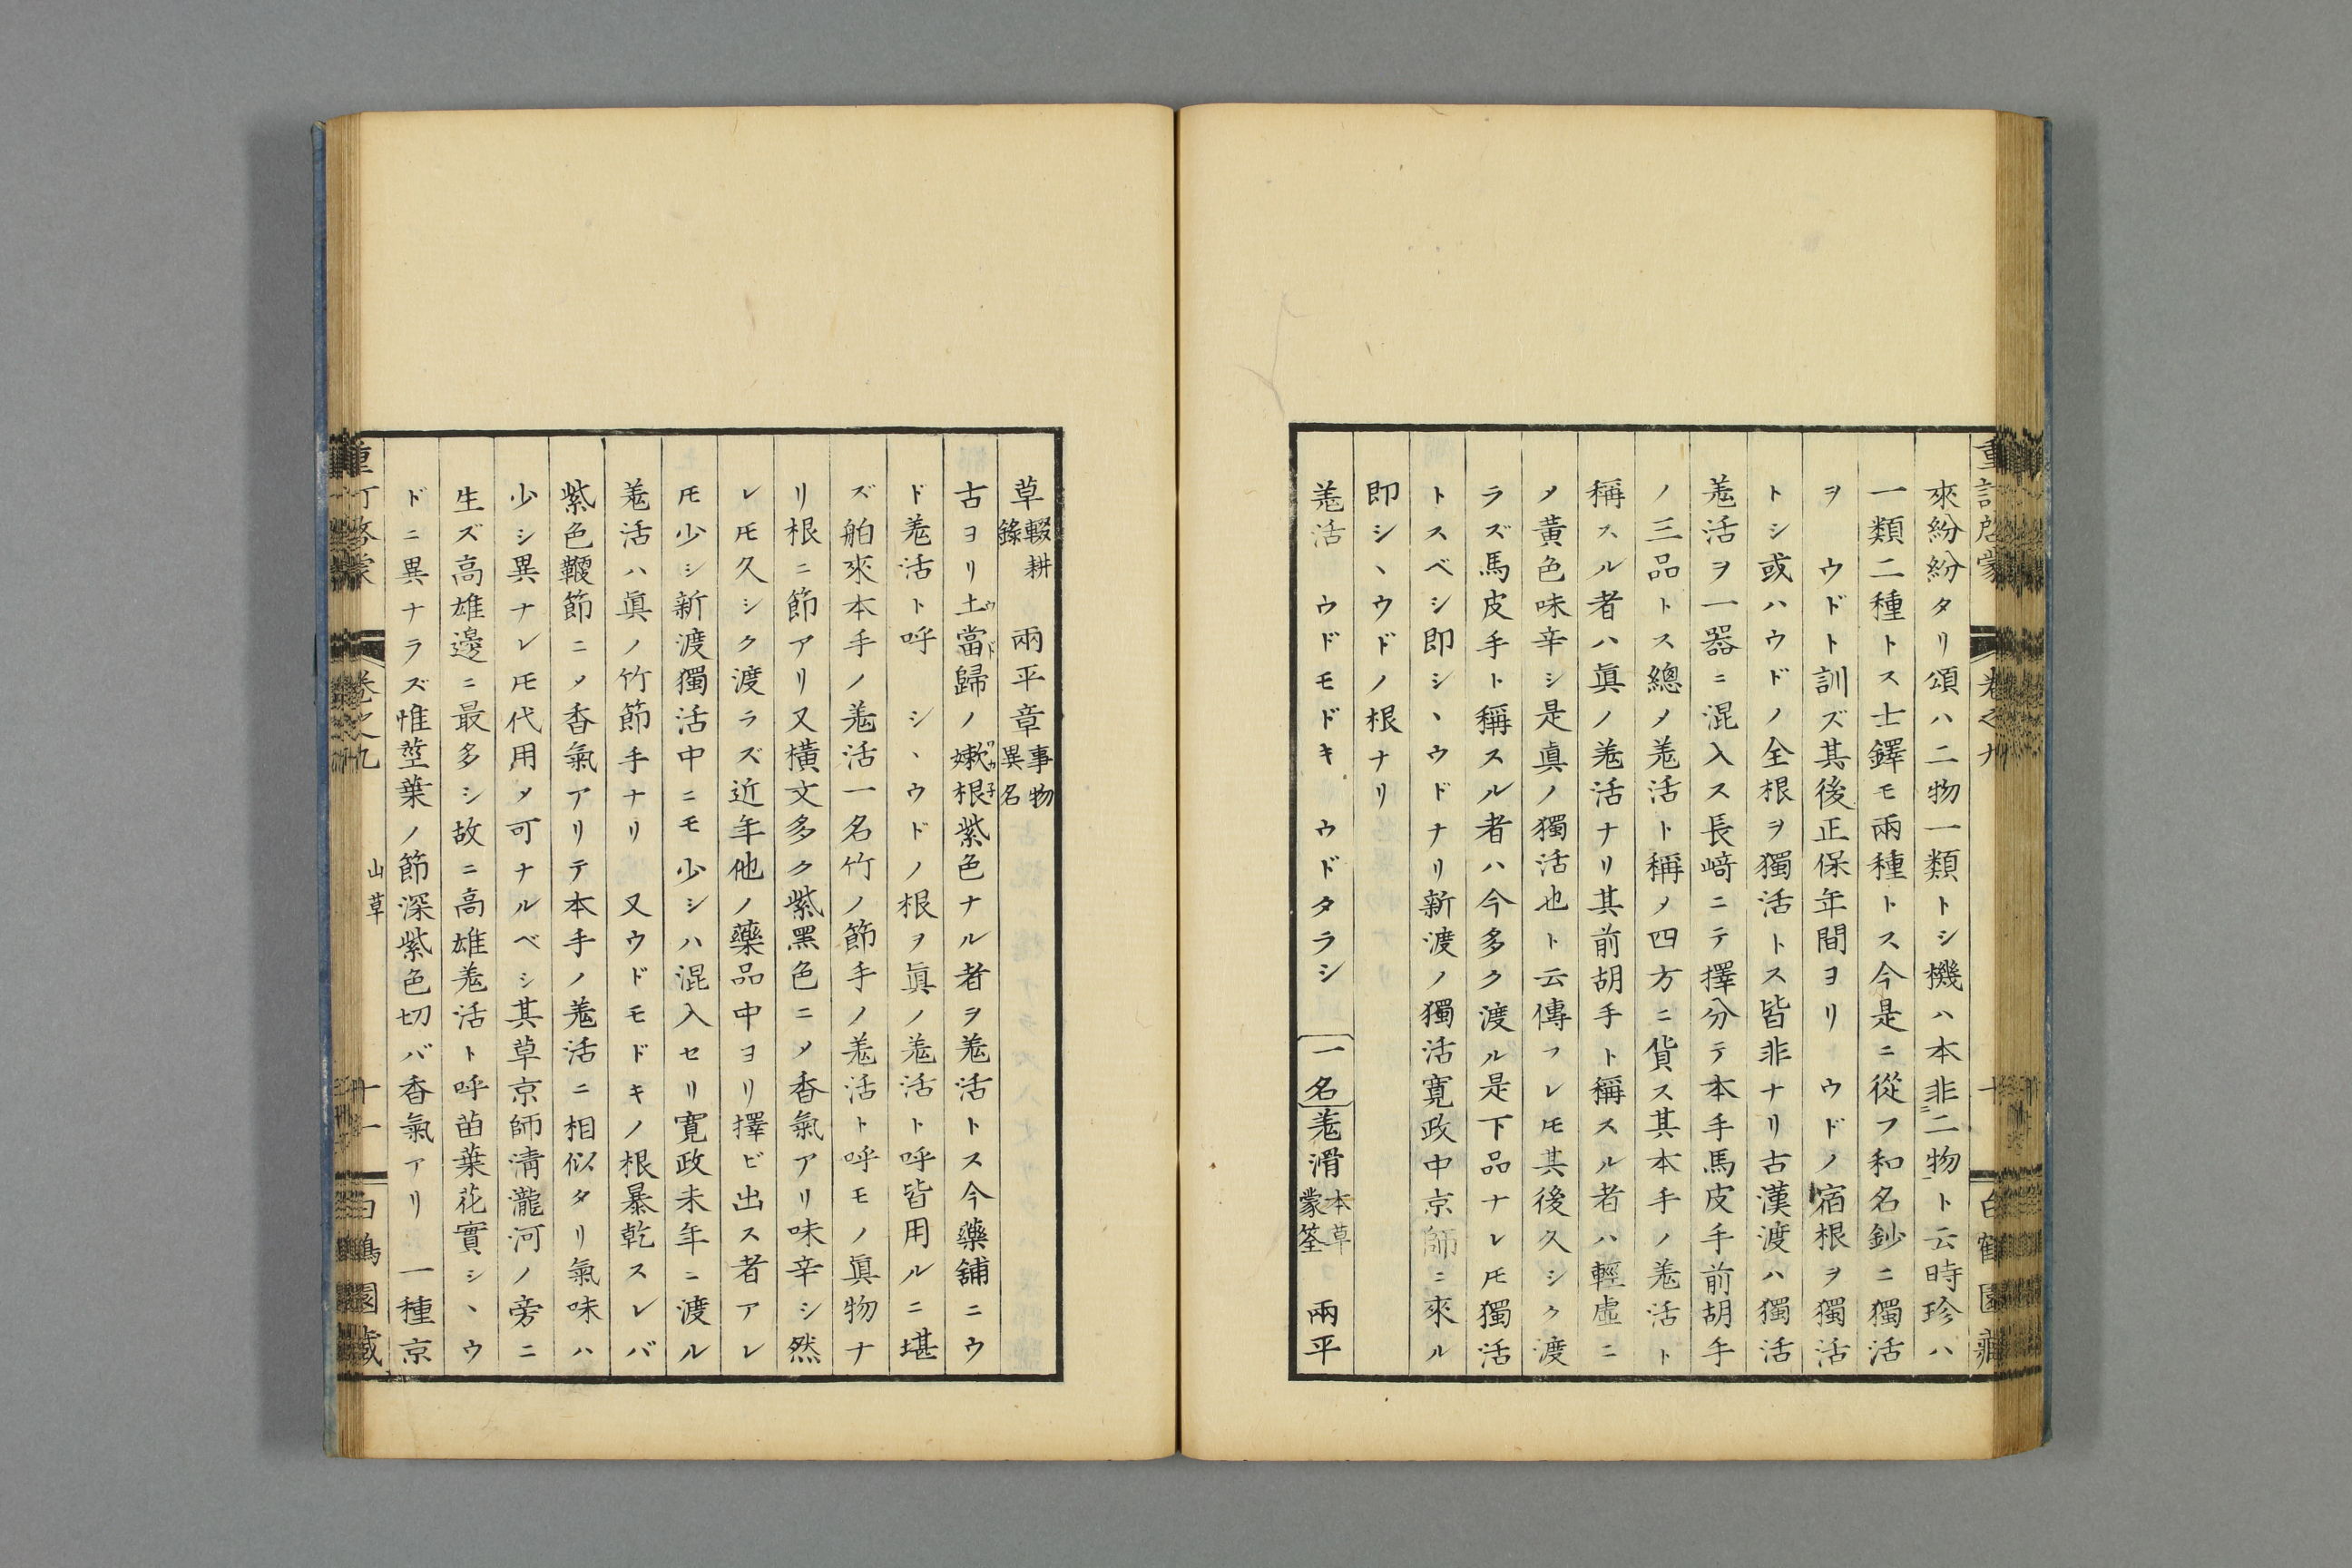 重訂啓蒙 卷之九 十 白鶴園藏
來紛紛タリ頌ハ二物一類トシ機ハ本非二物ト云時珍ハ
一類二種トス士鐸モ兩種トス今是ニ從フ和名鈔ニ獨活
ヲ ウドト訓ズ其後正保年間ヨリ ウドノ宿根ヲ獨活
トシ或ハウドノ全根ヲ獨活トス皆非ナリ古漢渡ハ獨活
羗活ヲ一器ニ混入ス長﨑ニテ擇分テ本手馬皮手前胡手
ノ三品トス總メ羗活ト稱メ四方ニ貨ス其本手ノ羗活ト
稱スル者ハ眞ノ羗活ナリ其前胡手ト稱スル者ハ輕虛ニ
メ黄色味辛シ是眞ノ獨活也ト云傳フレ𪜈其後久シク渡
ラズ馬皮手ト稱スル者ハ今多ク渡ル是下品ナレ𪜈獨活
トスベシ即シヽウドナリ新渡ノ獨活寛政中京師ニ來ル
即シヽウドノ根ナリ
羗活 ウドモドキ ウドタラシ 一名羗滑本草蒙筌 兩平
草輟耕錄 兩平章事物異名
古ヨリ土當歸ウドノ嫰根ワカ子紫色ナル者ヲ羗活トス今藥舖ニウ
ド羗活ト呼 シヽウドノ根ヲ眞ノ羗活ト呼皆用ルニ堪
ズ舶來本手ノ羗活一名竹ノ節手ノ羗活ト呼モノ眞物ナ
リ根ニ節アリ又橫文多ク紫黑色ニメ香氣アリ味辛シ然
レ𪜈久シク渡ラズ近年他ノ藥品中ヨリ擇ビ出ス者アレ
𪜈少シ新渡獨活中ニモ少シハ混入セリ寛政未年ニ渡ル
羗活ハ眞ノ竹節手ナリ 又ウドモドキノ根暴乾スレバ
紫色鞭節ニメ香氣アリテ本手ノ羗活ニ相似タリ氣味ハ
少シ異ナレ𪜈代用メ可ナルベシ其草京師淸瀧河ノ旁ニ
生ズ高雄邊ニ最多シ故ニ高雄羗活ト呼苗葉花實シヽウ
ドニ異ナラズ惟莖葉ノ節深紫色切バ香氣アリ 一種京
重訂啓蒙 卷之九 山草 十一 白鶴園藏